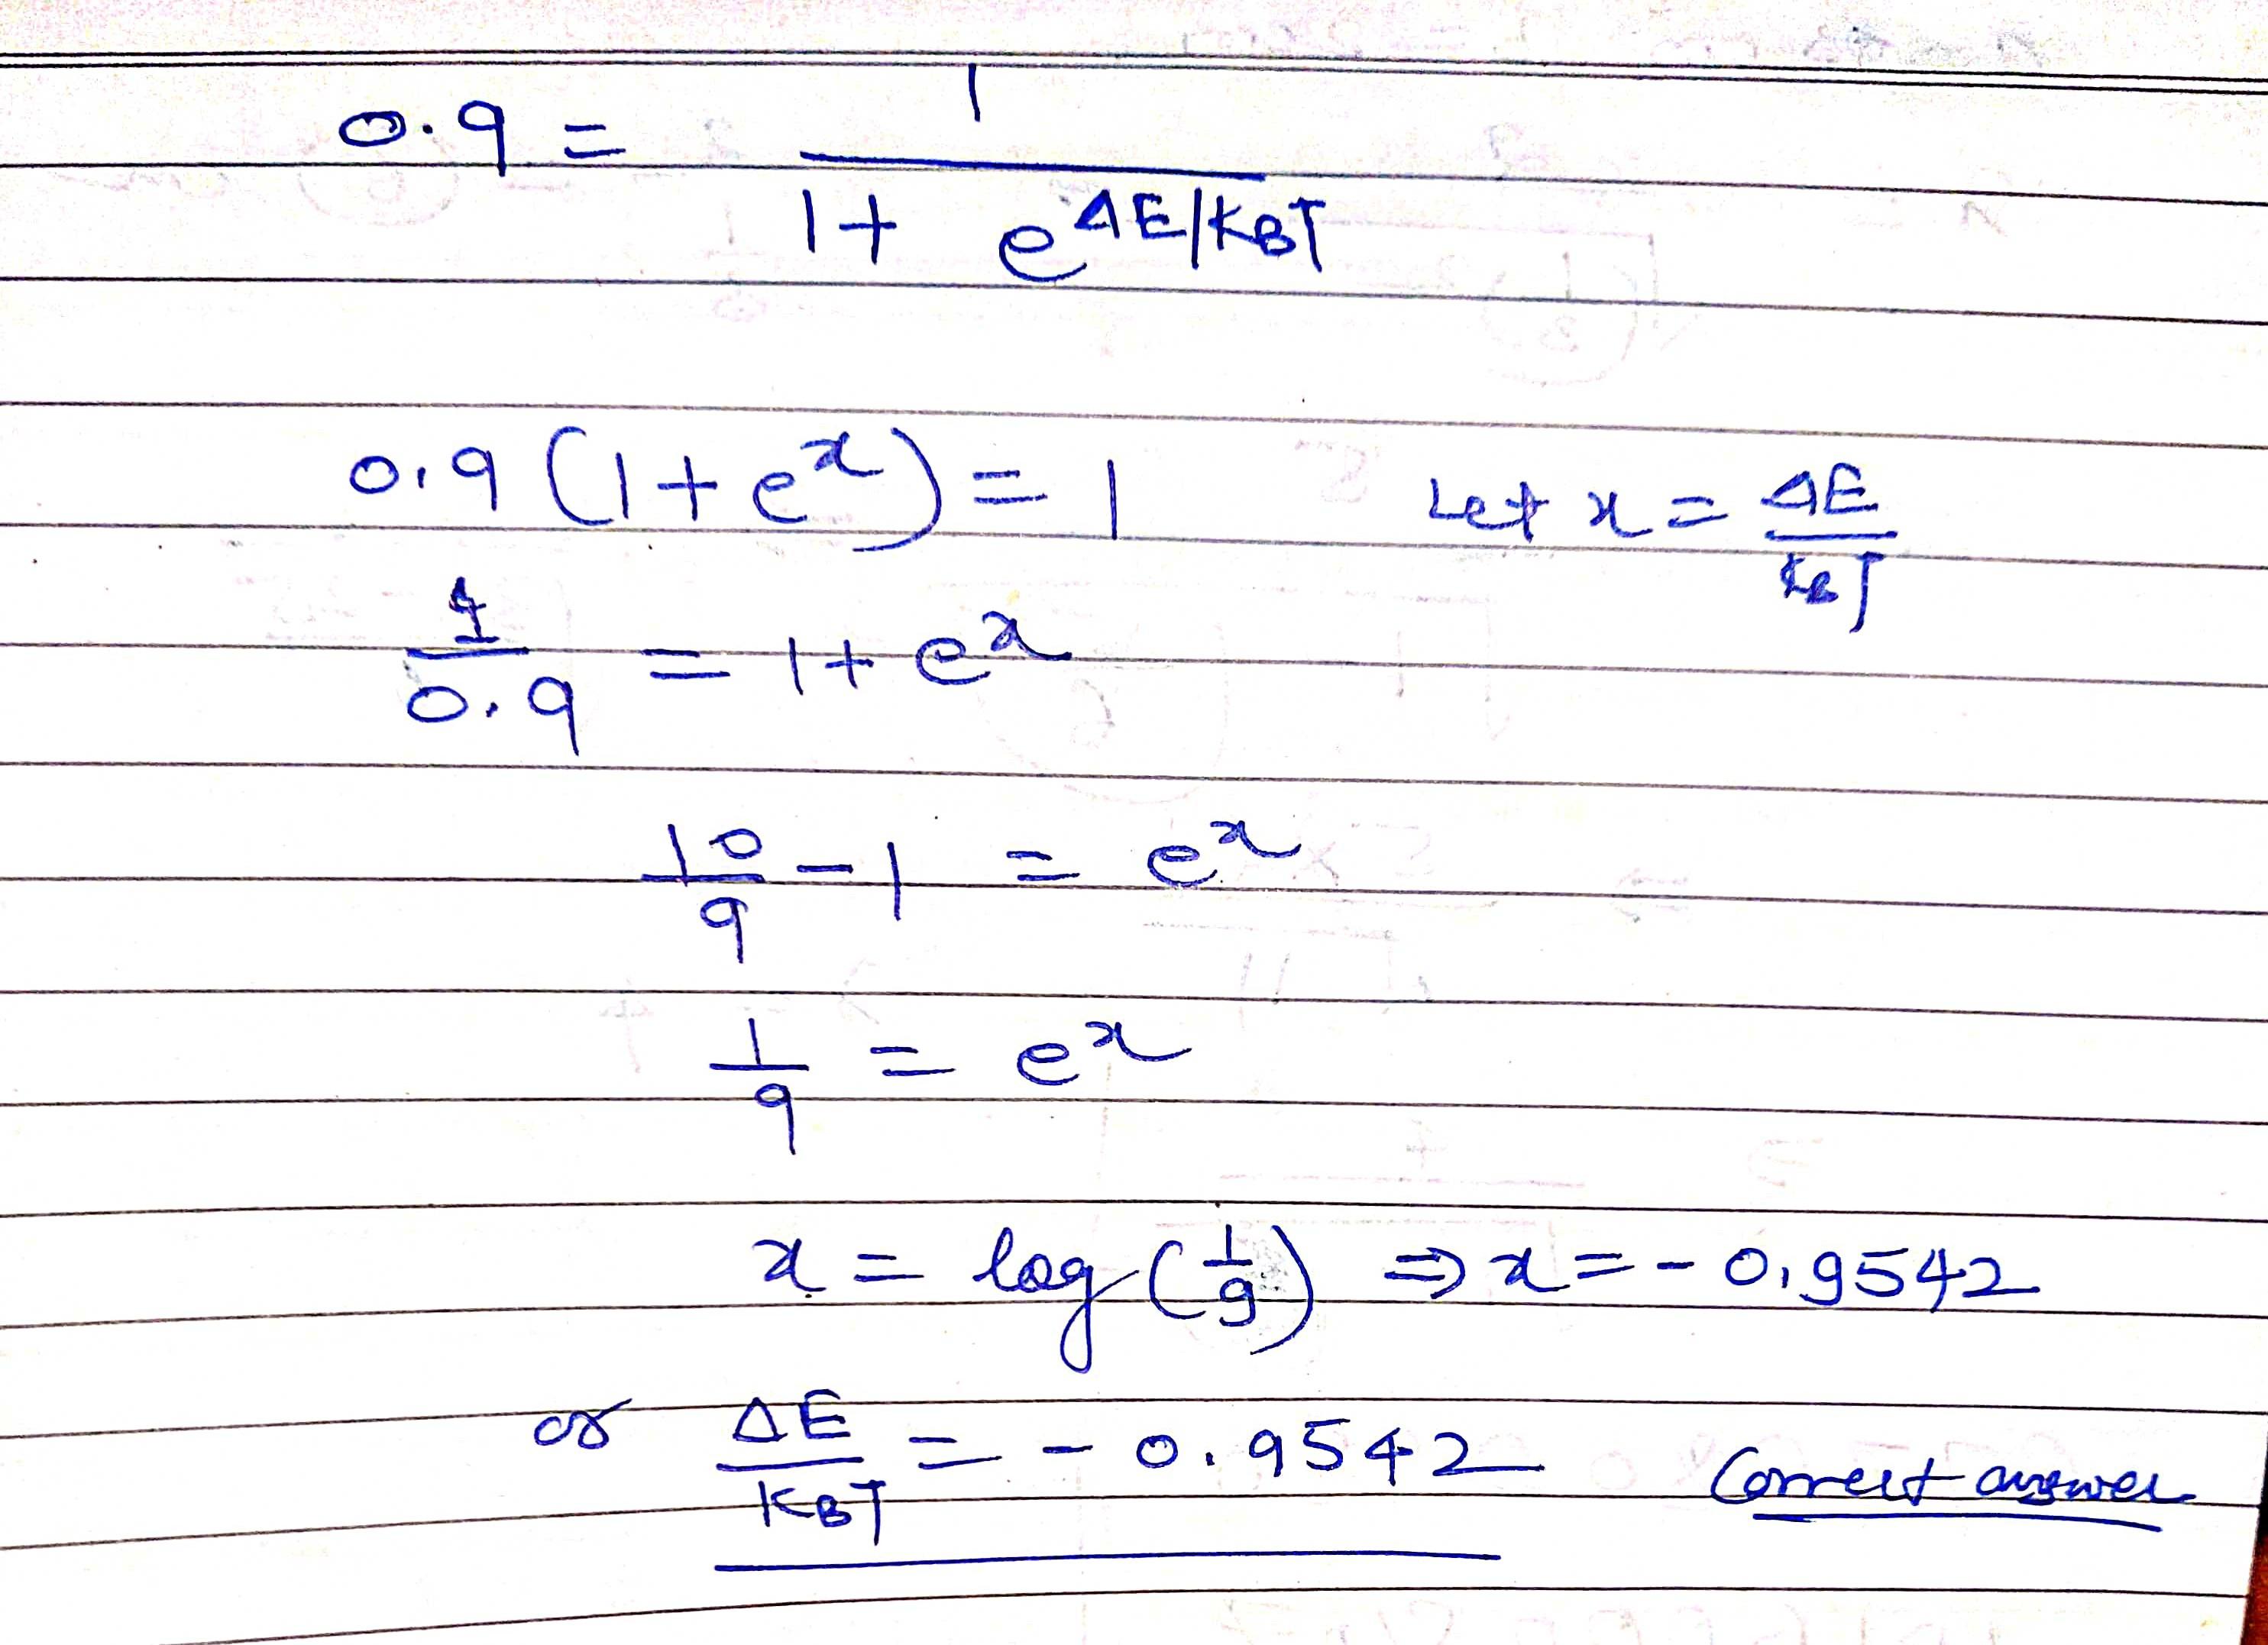 0.9 = 1 / (1 + e^ΔE/KBT)
0.9 (1 + e^x) = 1 Let x = ΔE/KBT
1/0.9 = 1 + e^x
10/9 - 1 = e^x
1/9 = e^x
x = log (1/9) ⇒ x = - 0.9542
or ΔE/KBT = - 0.9542 Correct answer